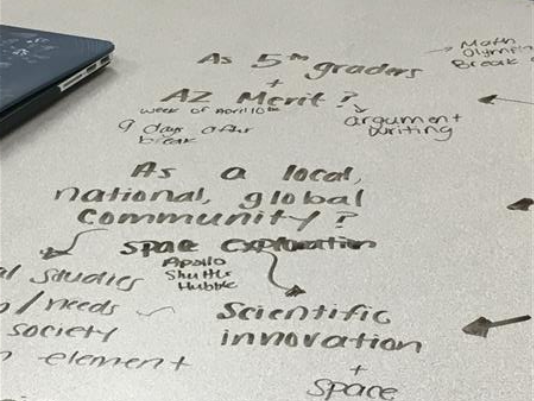 As 5th graders
+
AZ Merit?
week of April 10th
9 days after
break
argument
writing
Math
Break
As a local,
national, global
Community?
space exploration
Apollo
Shuttle
Hubble
Studies
/needs
society
element
Scientific
innovation
+
space